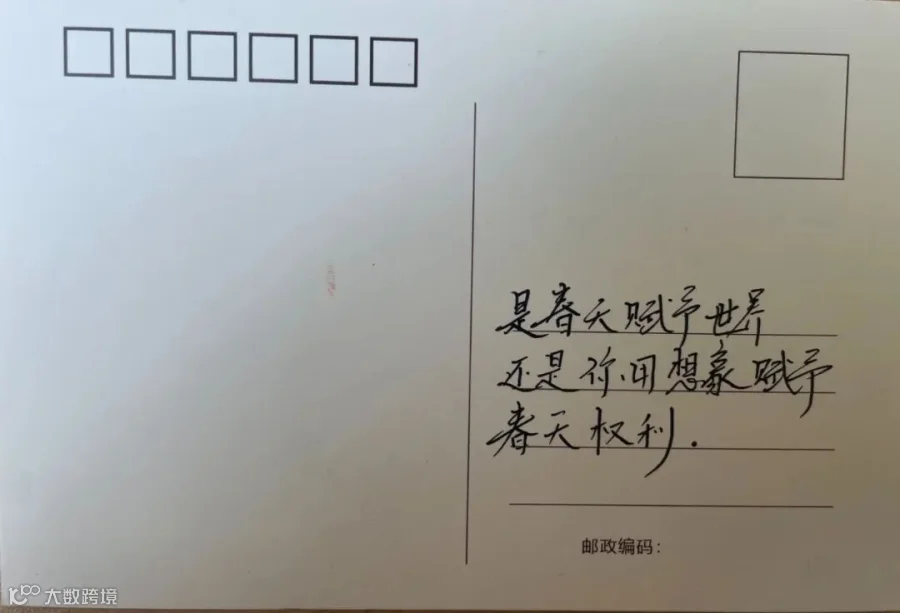 是春天赋予世界
还是你用想象赋予
春天权利.
邮政编码：
大数跨境